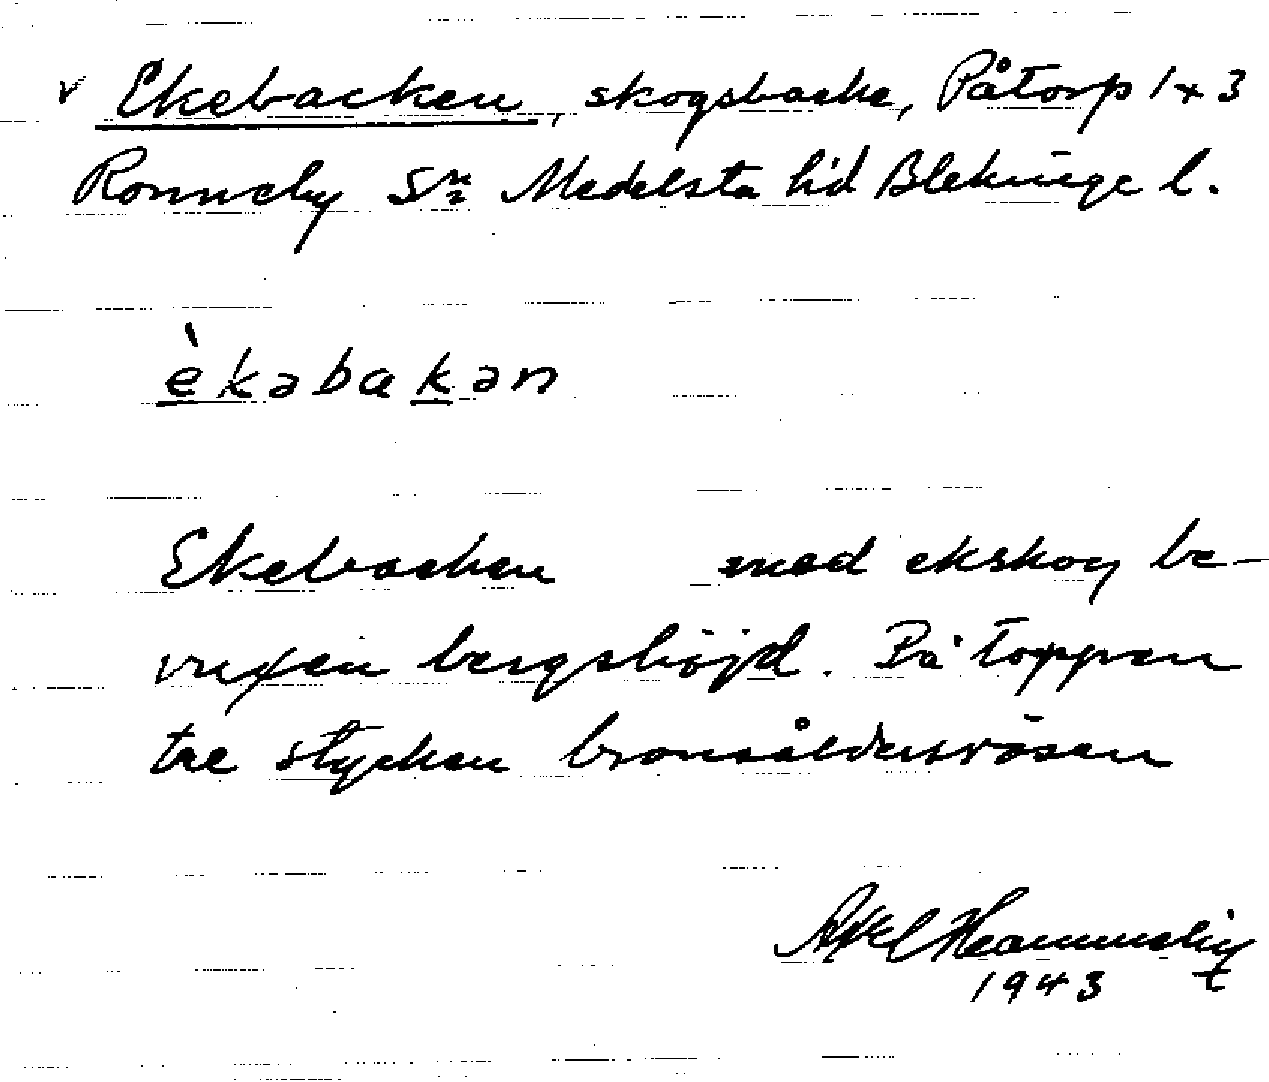 v Ekebacken, skogsbacke, Påtorp 1 + 3
Ronneby Sn Medelsta hd Blekinge l.
èkəbakən
Ekebacken med ekskog be-
vuxen bergshöjd. På toppen
tre stycken bronsåldersrösen
Axel
1943